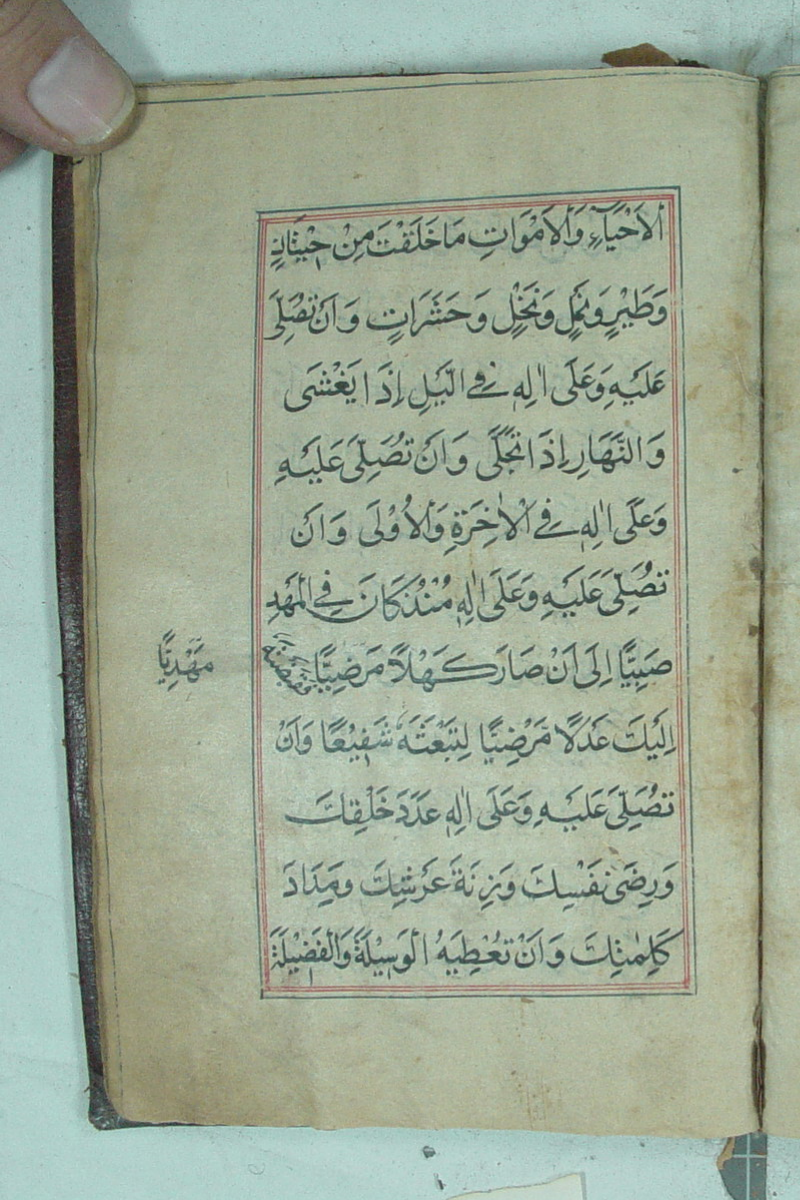 اَلاَحْيَآءِ وَاَلاَمْوَاتِ مَا خَلَقْتَ مِنْ حِيْتَانٍ
وَطَيْرٍ وَنَمْلٍ وَنَحْلٍ وَحَشَرَاتٍ وَاَنْ تُصَلِّىَ
عَلَيْهِ وَعَلَى اٰلِهٖ فِي الَّيْلِ اِذَا يَغْشَى
وَالنَّهَارِ اِذَا تَجَلَّى وَاَنْ تُصَلِّىَ عَلَيْهِ
وَعَلَى اٰلِهٖ فِي اْلاٰخِرَةِ وَاْلاُوْلَى وَاَنْ
تُصَلِّىَ عَلَيْهِ وَعَلَى اٰلِهٖ مُنْذُ كَانَ فِي الْمَهْدِ
صَبِيًّا اِلَى اَنْ صَارَ كَهْلاً مَرَضِيًّا
مَهْدِيًّا
اِلَيْكَ عَدْلًا مَرْضِيًّا لِتَبْعَثَهُ شَفِيْعًا وَاَنْ
تُصَلِّىَ عَلَيْهِ وَعَلَى اٰلِهٖ عَدَدَ خَلْقِكَ
وَرِضَى نَفْسِكَ وَزِنَةَ عَرْشِكَ وَمِدَادَ
كَلِمٰتِكَ وَاَنْ تُعْطِيَهُ الْوَسِيْلَةَ وَالْفَضِيْلَةَ